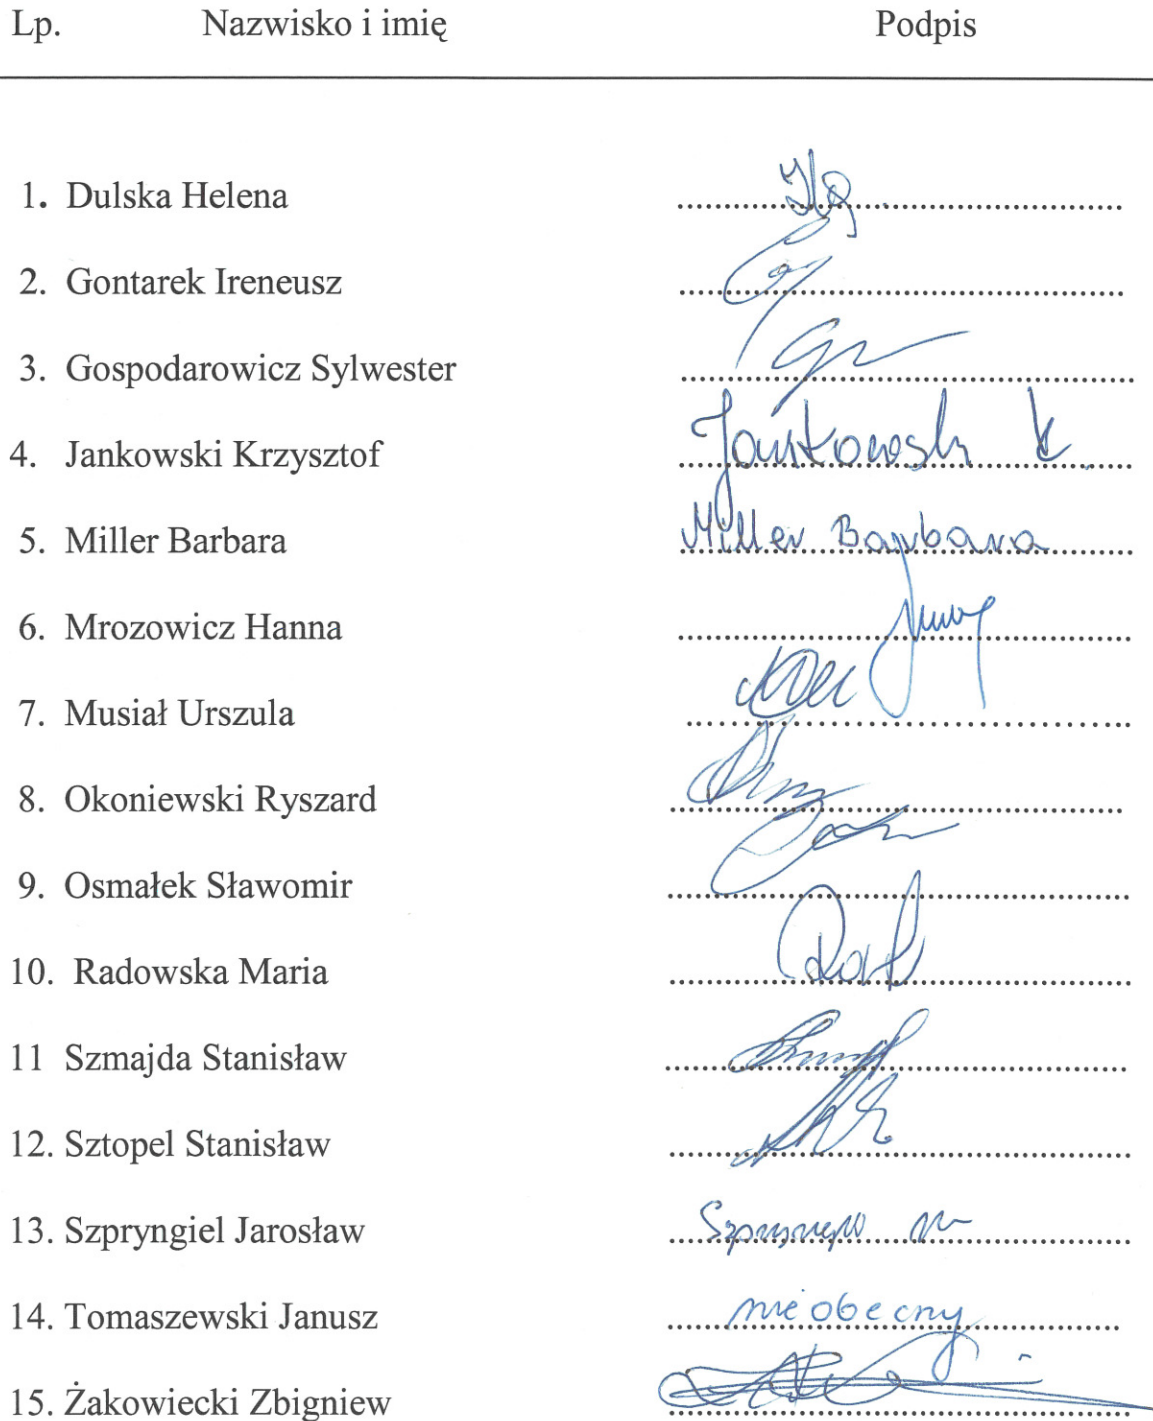 Lp. Nazwisko i imię Podpis
1. Dulska Helena
2. Gontarek Ireneusz
3. Gospodarowicz Sylwester
4. Jankowski Krzysztof Jankowski K.
5. Miller Barbara Miller Barbara
6. Mrozowicz Hanna
7. Musiał Urszula
8. Okoniewski Ryszard
9. Osmałek Sławomir
10. Radowska Maria
11 Szmajda Stanisław
12. Sztopel Stanisław
13. Szpryngiel Jarosław
14. Tomaszewski Janusz nieobecny
15. Żakowiecki Zbigniew